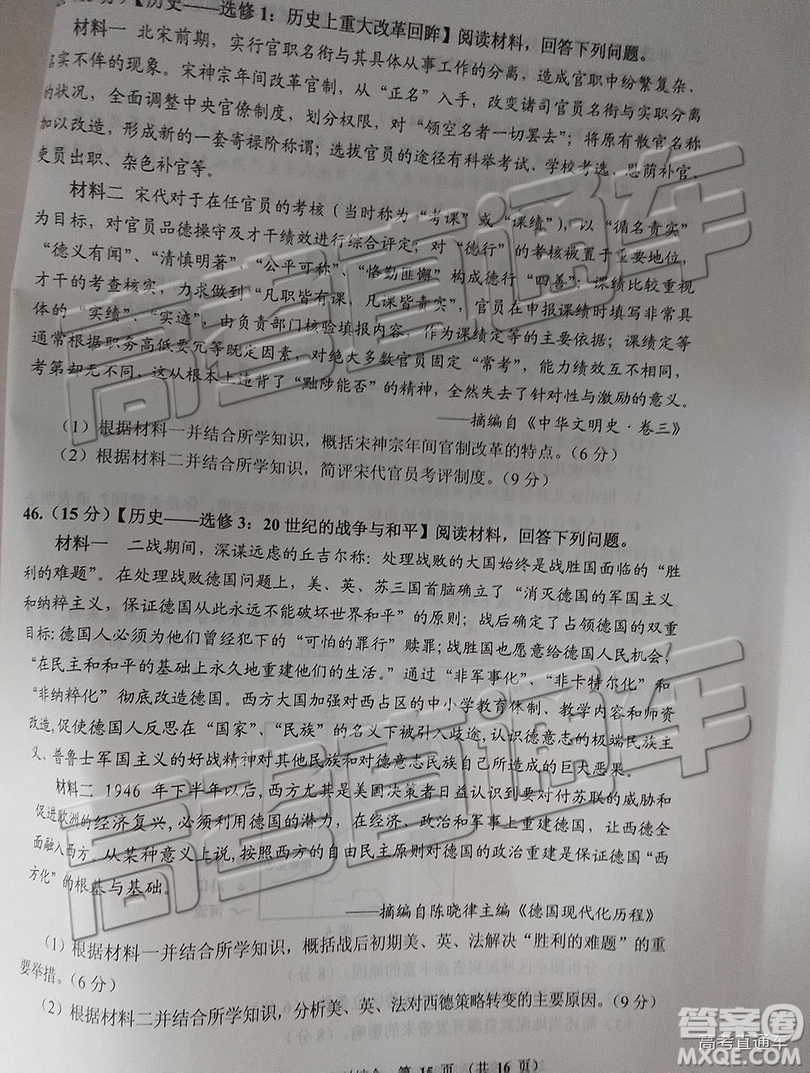 【历史——选修1：历史上重大改革回眸】阅读材料，回答下列问题。
材料一 北宋前期，实行官职名衔与其具体从事工作的分离，造成官职中纷繁复杂、
名实不侔的现象。宋神宗年间改革官制，从“正名”入手，改变诸司官员名衔与实职分离
的状况，全面调整中央官僚制度，划分权限，对“领空名者一切罢去”；将原有散官名称
加以改造，形成新的一套寄禄阶称谓；选拔官员的途径有科举考试、学校考选、恩荫补官、
吏员出职、杂色补官等。
材料二 宋代对于在任官员的考核（当时称为“考课”或“课绩”），以“循名责实”
为目标，对官员品德操守及才干绩效进行综合评定；对“德行”的考核被置于重要地位，
“德义有闻”、“清慎明著”、“公平可称”、“恪勤匪懈”构成德行“四善”；课绩比较重视
才干的考查核实，力求做到“凡职皆有课，凡课皆责实”，官员在申报课绩时填写非常具
体的“实绩”、“实迹”，由负责部门核验填报内容，作为课绩定等的主要依据；课绩定等
通常根据职务高低要冗等既定因素，对绝大多数官员固定“常考”，能力绩效互不相同，
考第却无不同，这从根本上违背了“黜陟能否”的精神，全然失去了针对性与激励的意义。
——摘编自《中华文明史·卷三》
（1）根据材料一并结合所学知识，概括宋神宗年间官制改革的特点。（6分）
（2）根据材料二并结合所学知识，简评宋代官员考评制度。（9分）
46.（15分）【历史——选修3：20世纪的战争与和平】阅读材料，回答下列问题。
材料一 二战期间，深谋远虑的丘吉尔称：处理战败的大国始终是战胜国面临的“胜
利的难题”。在处理战败德国问题上，美、英、苏三国首脑确立了“消灭德国的军国主义
和纳粹主义，保证德国从此永远不能破坏世界和平”的原则；战后确定了占领德国的双重
目标：德国人必须为他们曾经犯下的“可怕的罪行”赎罪；战胜国也愿意给德国人民机会，
“在民主和和平的基础上永久地重建他们的生活。”通过“非军事化”、“非卡特尔化”和
“非纳粹化”彻底改造德国。西方大国加强对西占区的中小学教育体制、教学内容和师资
改造，促使德国人反思在“国家”、“民族”的名义下被引入歧途，认识德意志的极端民族主
义、普鲁士军国主义的好战精神对其他民族和对德意志民族自己所造成的巨大恶果。
材料二 1946年下半年以后，西方尤其是美国决策者日益认识到要对付苏联的威胁和
促进欧洲的经济复兴，必须利用德国的潜力，在经济、政治和军事上重建德国，让西德全
面融入西方。从某种意义上说，按照西方的自由民主原则对德国的政治重建是保证德国“西
方化”的根基与基础。
——摘编自陈晓律主编《德国现代化历程》
（1）根据材料一并结合所学知识，概括战后初期美、英、法解决“胜利的难题”的重
要举措。（6分）
（2）根据材料二并结合所学知识，分析美、英、法对西德策略转变的主要原因。（9分）
第15页（共16页）
高考直通车
高考直通车
答案圈
高考直通车
MXQE.COM